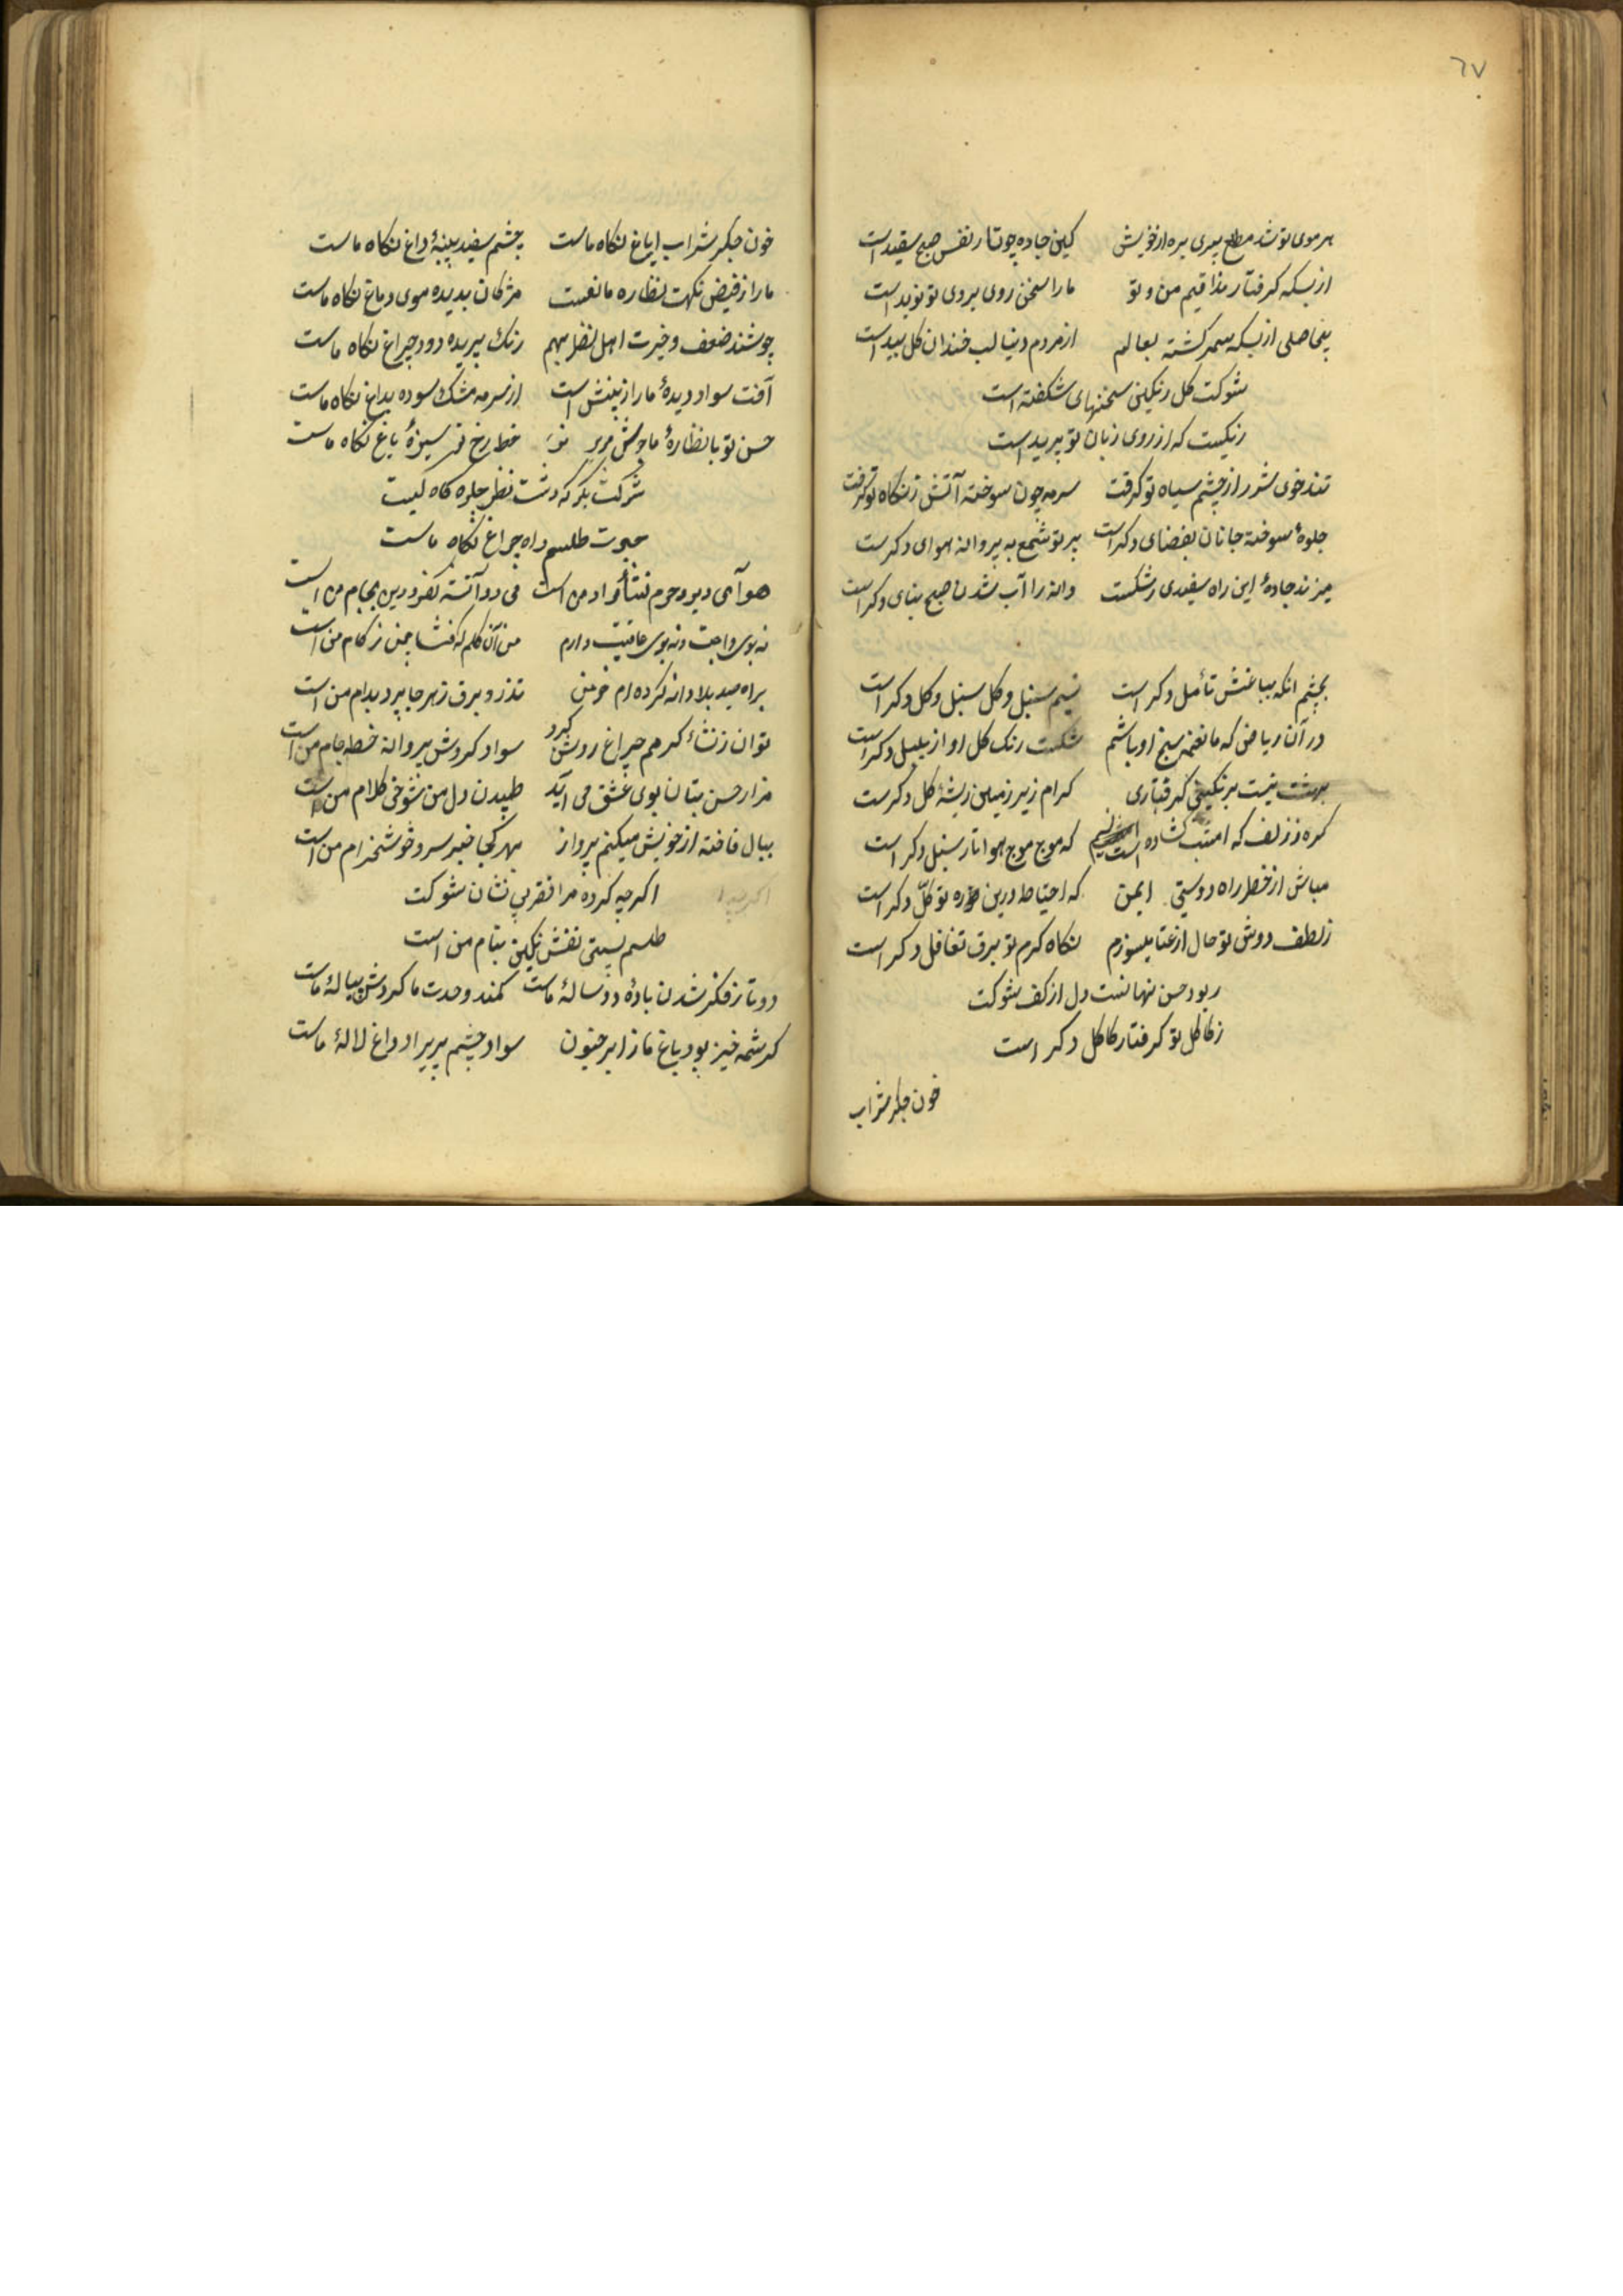 ٦٧
هر موی تو شد مطلع پیری بره از خویش کین جاده چو تار نفس صبح سفید است
از بسکه کرفتار مذاقیم من و تو ما را سخن روی بروی تو نوید است
بی‌حاصلی از بسکه سمر کشته بعالم از مردم دنیا لب خندان کل بید است
شوکت کل رنکین سخنهای شکفته است
رنکیست که از روی زبان تو پرید است
تند خوی شرر از چشم سیاه تو کرفت سرمه چون سوخته آتش ز نکاه تو کرفت
جلوهٔ سوخته جانان بفضای دکر است پرتو شمع به پروانه هوای دکرست
میزند جادهٔ این راه سفیدی ز شکست دانه را آب شدن صبح بنای دکر است
بچشم انکه بباغش تأمل دکر است نسیم سنبل و کل سنبل و کل دکر است
در آن ریاض که ما نغمه سنج او باشم شکست رنک کل اواز بلبل دکر است
نیست برنکینی کرفتاری کدام زیر زمین ریشهٔ کل دکرست
کره ز زلف که امشب کشاده است نسیم که موج موج هوا تار سنبل دکر است
مباش از خطر راه دوستی ایمن که احتیاط درین ره توکل دکر است
ز لطف دوش تو حال از عتاب میسوزم نکاه کرم تو برق تغافل دکر است
ربود حسن نهانست دل از کف شوکت
ز کاکل تو کرفتار کاکل دکر است
خون جکر شراب
خون جکر شراب ایاغ نکاه ماست چشم سفید پنبهٔ داغ نکاه ماست
ما را ز فیض نکهت نظاره مانعست مژکان بدیده موی دماغ نکاه ماست
جوشند ضعف و حیرت اهل نظر بهم رنک پریده دود چراغ نکاه ماست
آفت سواد دیدهٔ ما را ز بینش است از سرمه مشک سوده بداغ نکاه ماست
حسن تو با نظارهٔ ما جوش میزند خط رخ تو سبزهٔ باغ نکاه ماست
شوکت بکو که دشت نظر جلوه کاه کیست
حیرت طلسم راه چراغ نکاه ماست
هوای دیر و حرم نشأ مراد من است می دو آتشه کفر و دین بجام من است
نه بوی راحت و نه بوی عافیت دارم من آن کلم که چمن زکام من است
براه صید بلا دانه کرده‌ام خرمن تذرو برق ز هر جا پرد بدام من است
توان ز نشأ کرمم چراغ روشن کرد سواد کردش پروانه خط جام من است
مزار حسن بتان بوی عشق می آید طپیدن دل من شوخی کلام من است
ببال فاخته از خویش میکنم پرواز بهر کجا خبر سرو خوشخرام من است
اکرچه کرده مرا فقر بی نشان شوکت
طلسم نیستی نقش نکین بنام من است
دوتا ز فکر شدن بادهٔ دو ساله ماست کمند وحدت ما کردش پیالهٔ ماست
کرشمه خیز بود باغ ما ز ابر جنون سواد چشم پریزاد داغ لالهٔ ماست